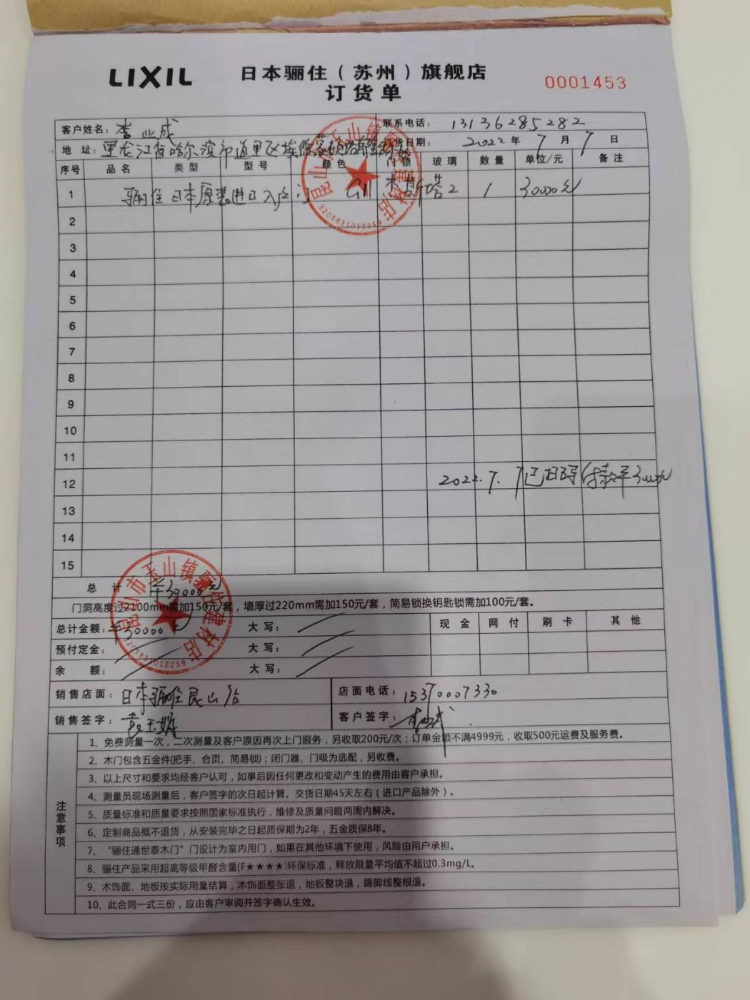 LIXIL 日本骊住（苏州）旗舰店
订货单
0001453
客户姓名：李业成 联系电话：13136285282
地 址：黑龙江省哈尔滨市道里区 日期：2022 年 7 月 7 日
序号 品名 类型 型号 颜色 玻璃 数量 单位/元 备注
1 骊住日本原装进口入户 G11 2 1 30000元
2
3
4
5
6
7
8
9
10
11
12 2022.7.7已
13
14
15
总 计 ¥30000元
门洞高度过2100mm需加150元/套，墙厚过220mm需加150元/套，简易锁换钥匙锁需加100元/套。
总计金额：¥30000元 大写： 现金 网付 刷卡 其他
预付定金： 大写：
余 额： 大写：
销售店面：日本骊住昆山店 店面电话：15370007330
销售签字： 客户签字：
注意事项
1、免费测量一次，二次测量及客户原因再次上门服务，另收取200元/次；订单金额不满4999元，收取500元运费及服务费。
2、木门包含五金件(把手、合页、简易锁)；闭门器、门吸为选配，另收费。
3、以上尺寸和要求均经客户认可，如事后因任何更改和变动产生的费用由客户承担。
4、测量员现场测量后，客户签字的次日起计算。交货日期45天左右（进口产品除外）。
5、质量标准和质量要求按照国家标准执行，维修及质量问题两周内解决。
6、定制商品概不退货，从安装完毕之日起质保期为2年，五金质保8年。
7、“骊住通世泰木门”门设计为室内用门，如果在其他环境下使用，风险由用户承担。
8、骊住产品采用超高等级甲醛含量(F★★★★)环保标准，释放限量平均值不超过0.3mg/L。
9、木饰面、地板按实际用量结算，木饰面整张退，地板整块退，踢脚线整根退。
10、此合同一式三份，应由客户审阅并签字确认生效。